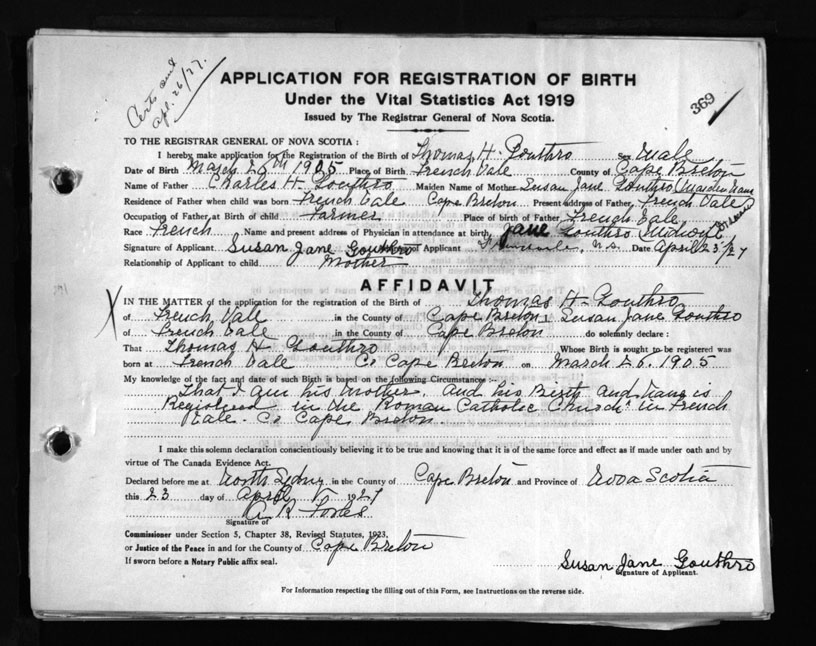 Certs sent
apl. 26/27.
369
APPLICATION FOR REGISTRATION OF BIRTH
Under the Vital Statistics Act 1919
Issued by The Registrar General of Nova Scotia.
TO THE REGISTRAR GENERAL OF NOVA SCOTIA:
I hereby make application for the Registration of the Birth of Thomas H. Gouthro Sex Male
Date of Birth March 26th 1905 Place of Birth French Vale County of Cape Breton
Name of Father Charles H. Gouthro Maiden Name of Mother Susan Jane Gouthro Maiden Name
Residence of Father when child was born French Vale Cape Breton Present address of Father French Vale
Occupation of Father at Birth of child Farmer Place of birth of Father French Vale
Race French Name and present address of Physician in attendance at birth Jane Gouthro Midwife
Signature of Applicant Susan Jane Gouthro of Applicant N.S. Date April 23rd/27
Relationship of Applicant to child Mother
AFFIDAVIT
IN THE MATTER of the application for the registration of the Birth of Thomas H Gouthro
of French Vale in the County of Cape Breton I Susan Jane Gouthro
of French Vale in the County of Cape Breton do solemnly declare:
That Thomas H Gouthro Whose Birth is sought to be registered was
born at French Vale Co Cape Breton on March 26. 1905
My knowledge of the fact and date of such Birth is based on the following Circumstances:
That I am his Mother. And his Birth and Name is
Registered in the Roman Catholic Church in French
Vale. Co Cape Breton.
I make this solemn declaration conscientiously believing it to be true and knowing that it is of the same force and effect as if made under oath and by
virtue of The Canada Evidence Act.
Declared before me at North Sydney in the County of Cape Breton and Province of Nova Scotia
this 23 day of April 1927
A R Forbes
Signature of
Commissioner under Section 5, Chapter 38, Revised Statutes, 1923,
or Justice of the Peace in and for the County of Cape Breton
If sworn before a Notary Public affix seal.
Susan Jane Gouthro
Signature of Applicant.
For Information respecting the filling out of this Form, see Instructions on the reverse side.